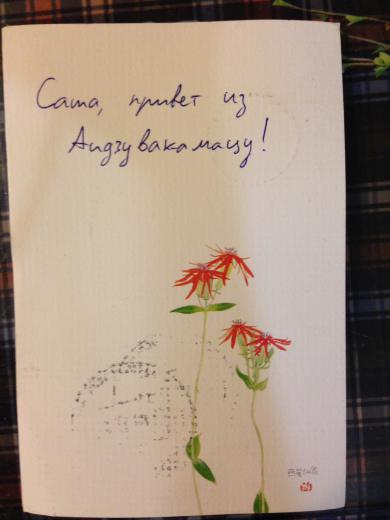 Саша, привет из
Аидзувакамацу!